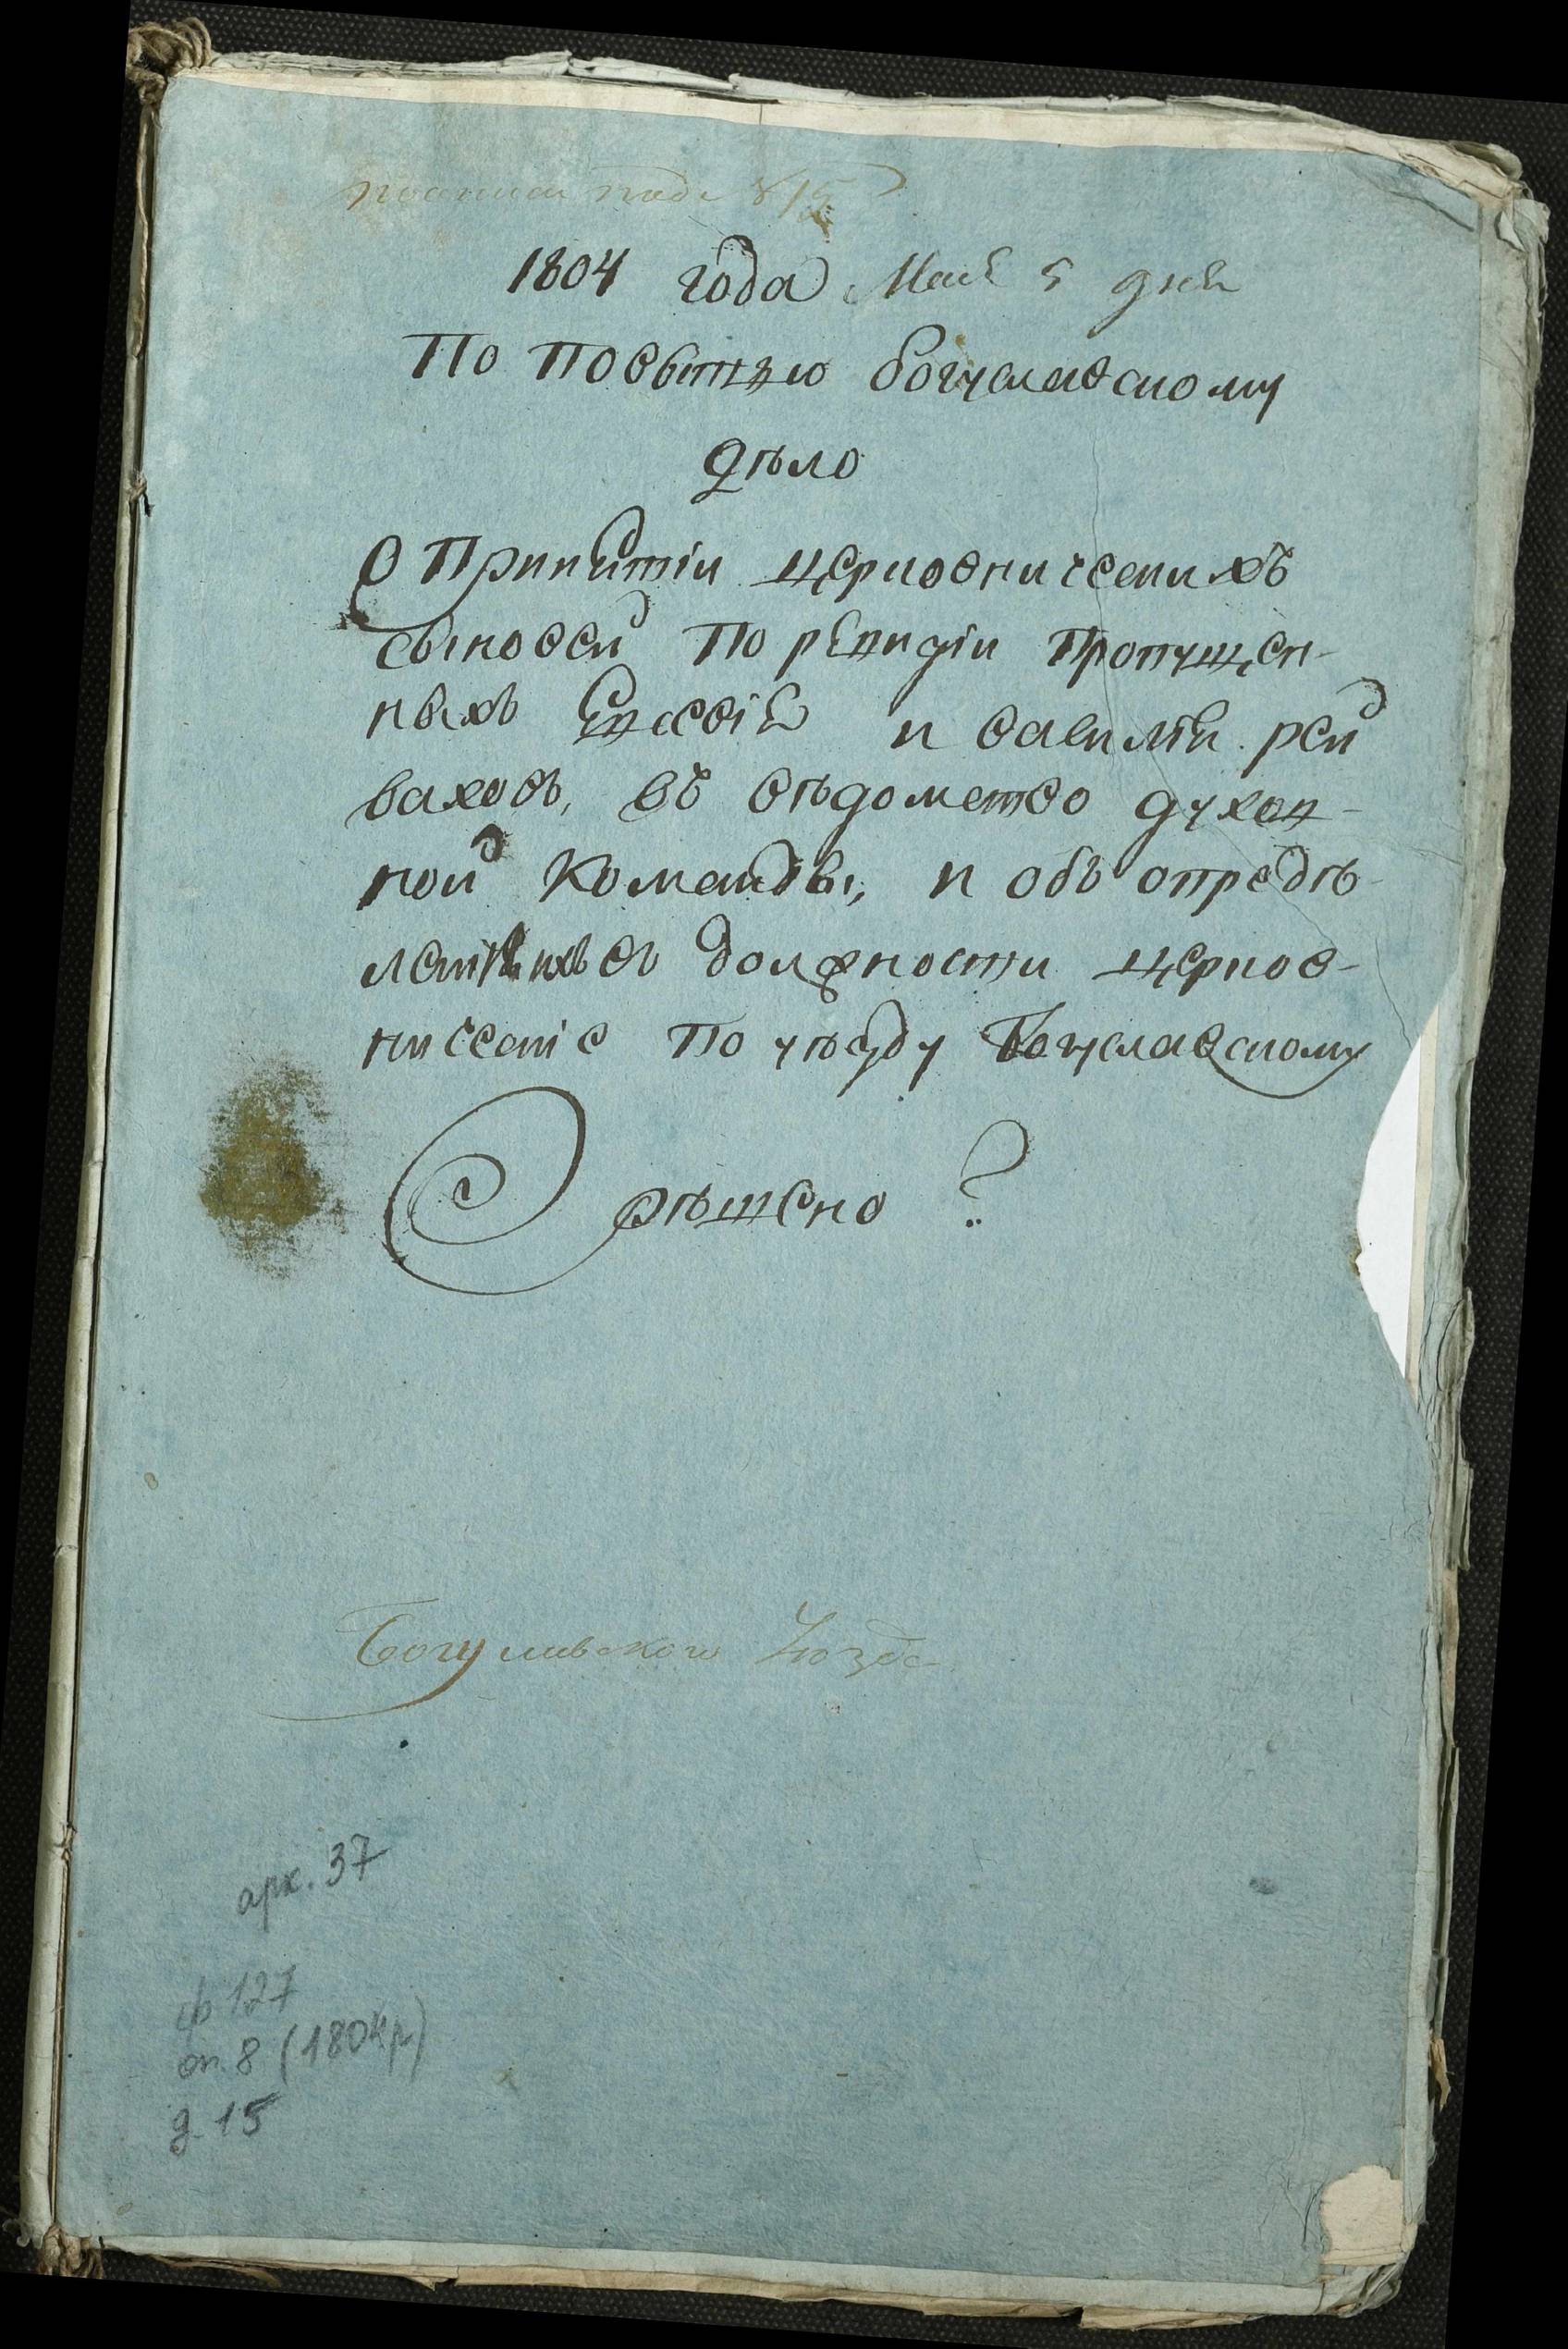 1804 года Мая 5 дня
По Повѣтѣю Богуславскому
дѣло
О Принятіи церковническихъ
сыновей По ревизіи Пропущен-
ныхъ Евсевія и Василія Рей
ваховъ, въ вѣдомство духов-
ной Команды, и объ опредѣ-
леніи ихъ въ должности церков-
ническіе По уѣзду Богуславскому
рѣшено
Богуславского Уѣзда
арк. 37
ф 127
оп. 8 (1804 р)
д. 15